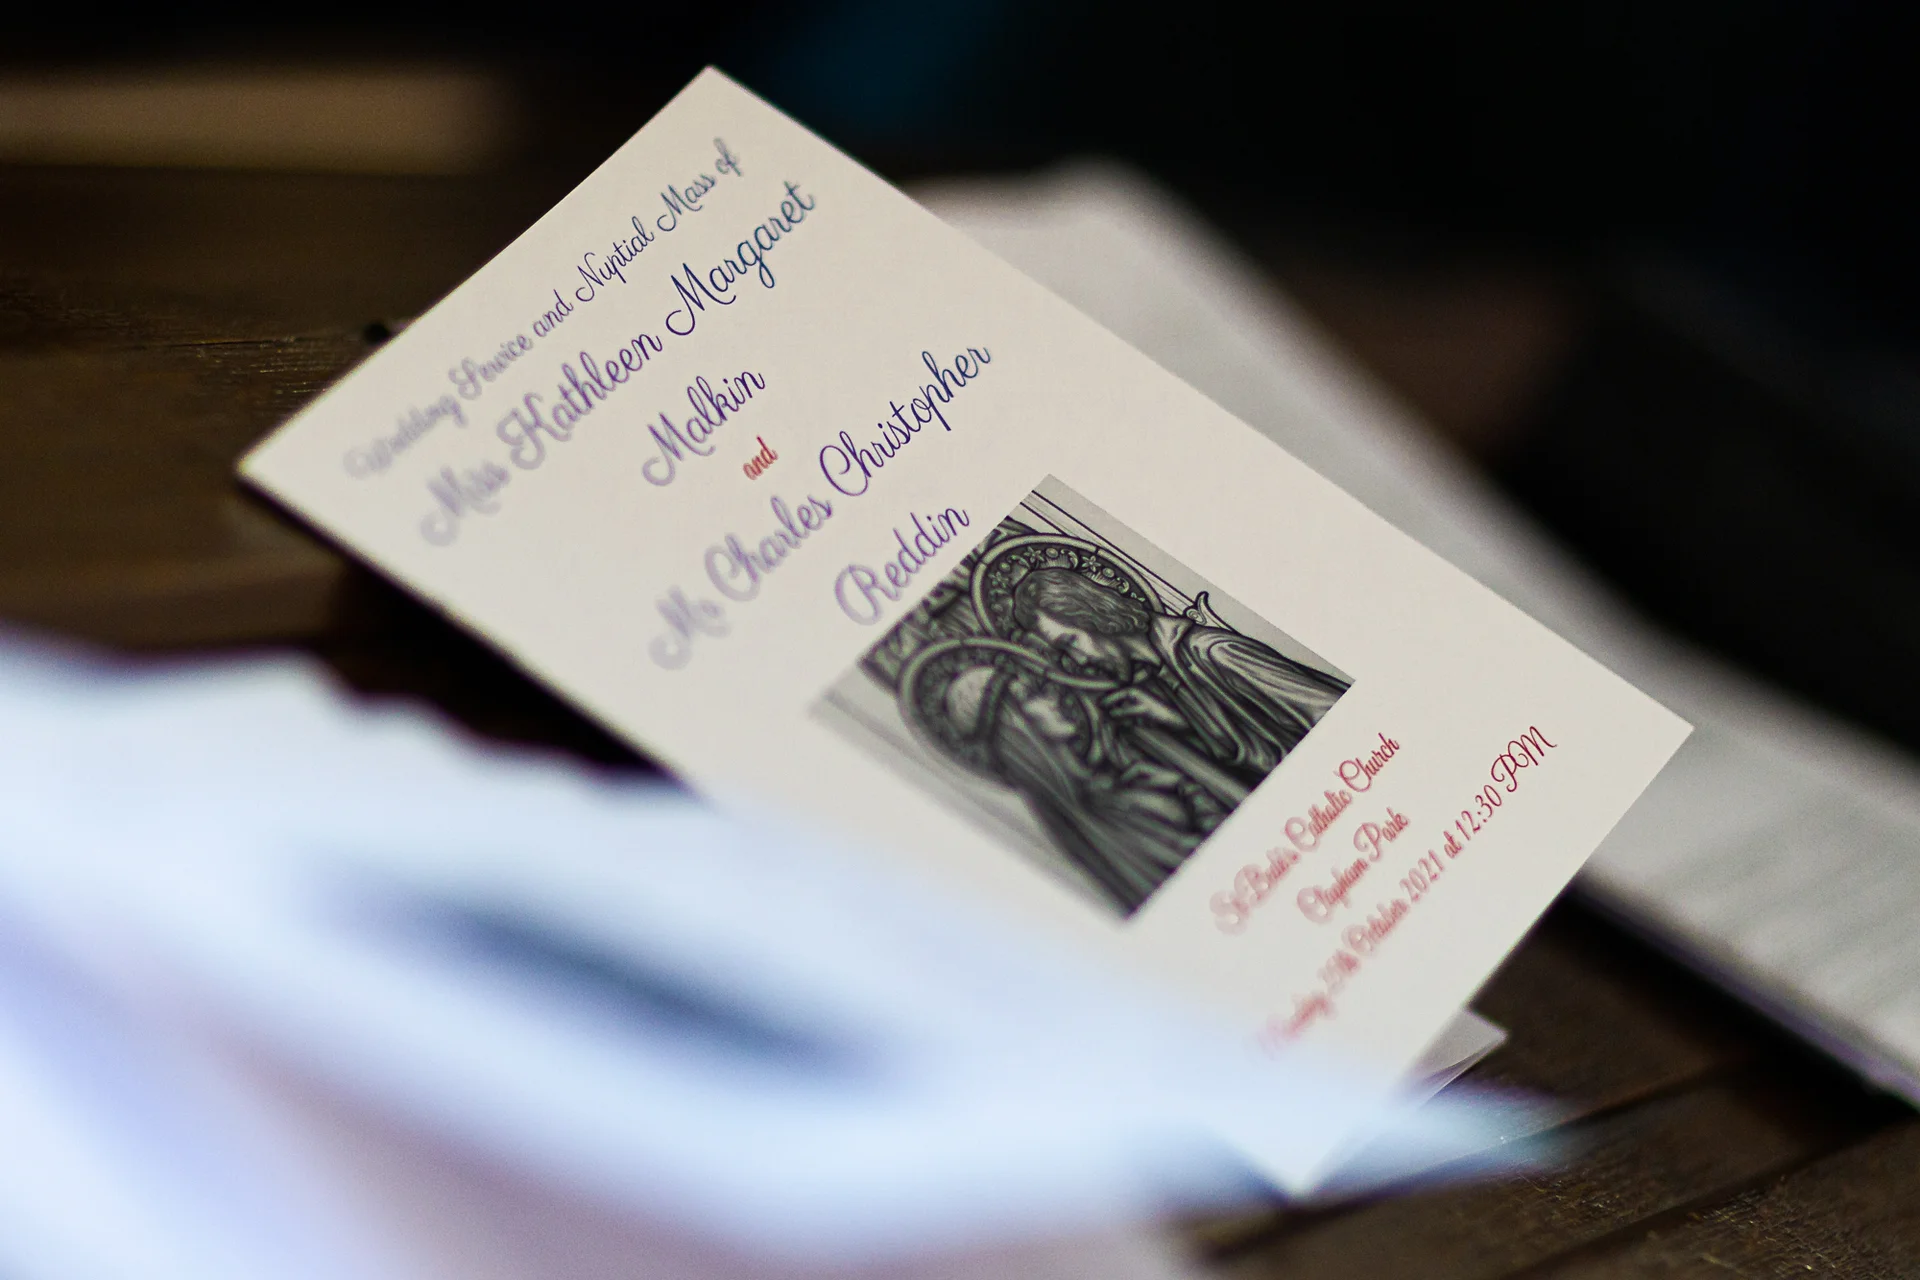 Wedding Service and Nuptial Mass of
Miss Kathleen Margaret
Malkin
and
Mr Charles Christopher
Reddin
St Bede's Catholic Church
Clapham Park
25th October 2021 at 12:30 PM